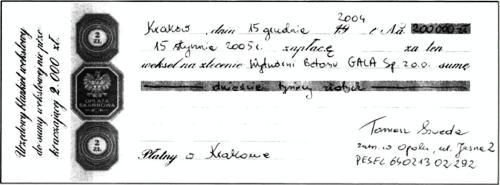 Urzędowy blankiet wekslowy
do sumy wekslowej na przekraczającej 2.000 zł.
2
ZŁ
OPŁATA
SKARBOWA
2
ZŁ
Kraków, dnia 15 grudnia 2004 r. Na 200 000 zł
15 stycznia 2005 r. zapłacę za ten
weksel na zlecenie Wytwórni Betonu GALA Sp. z o.o. sumę
dwieście tysięcy złotych
Płatny w Krakowie
Tomasz Sweda
zam. w Opolu, ul. Jasna 2
PESEL 640213 02 292